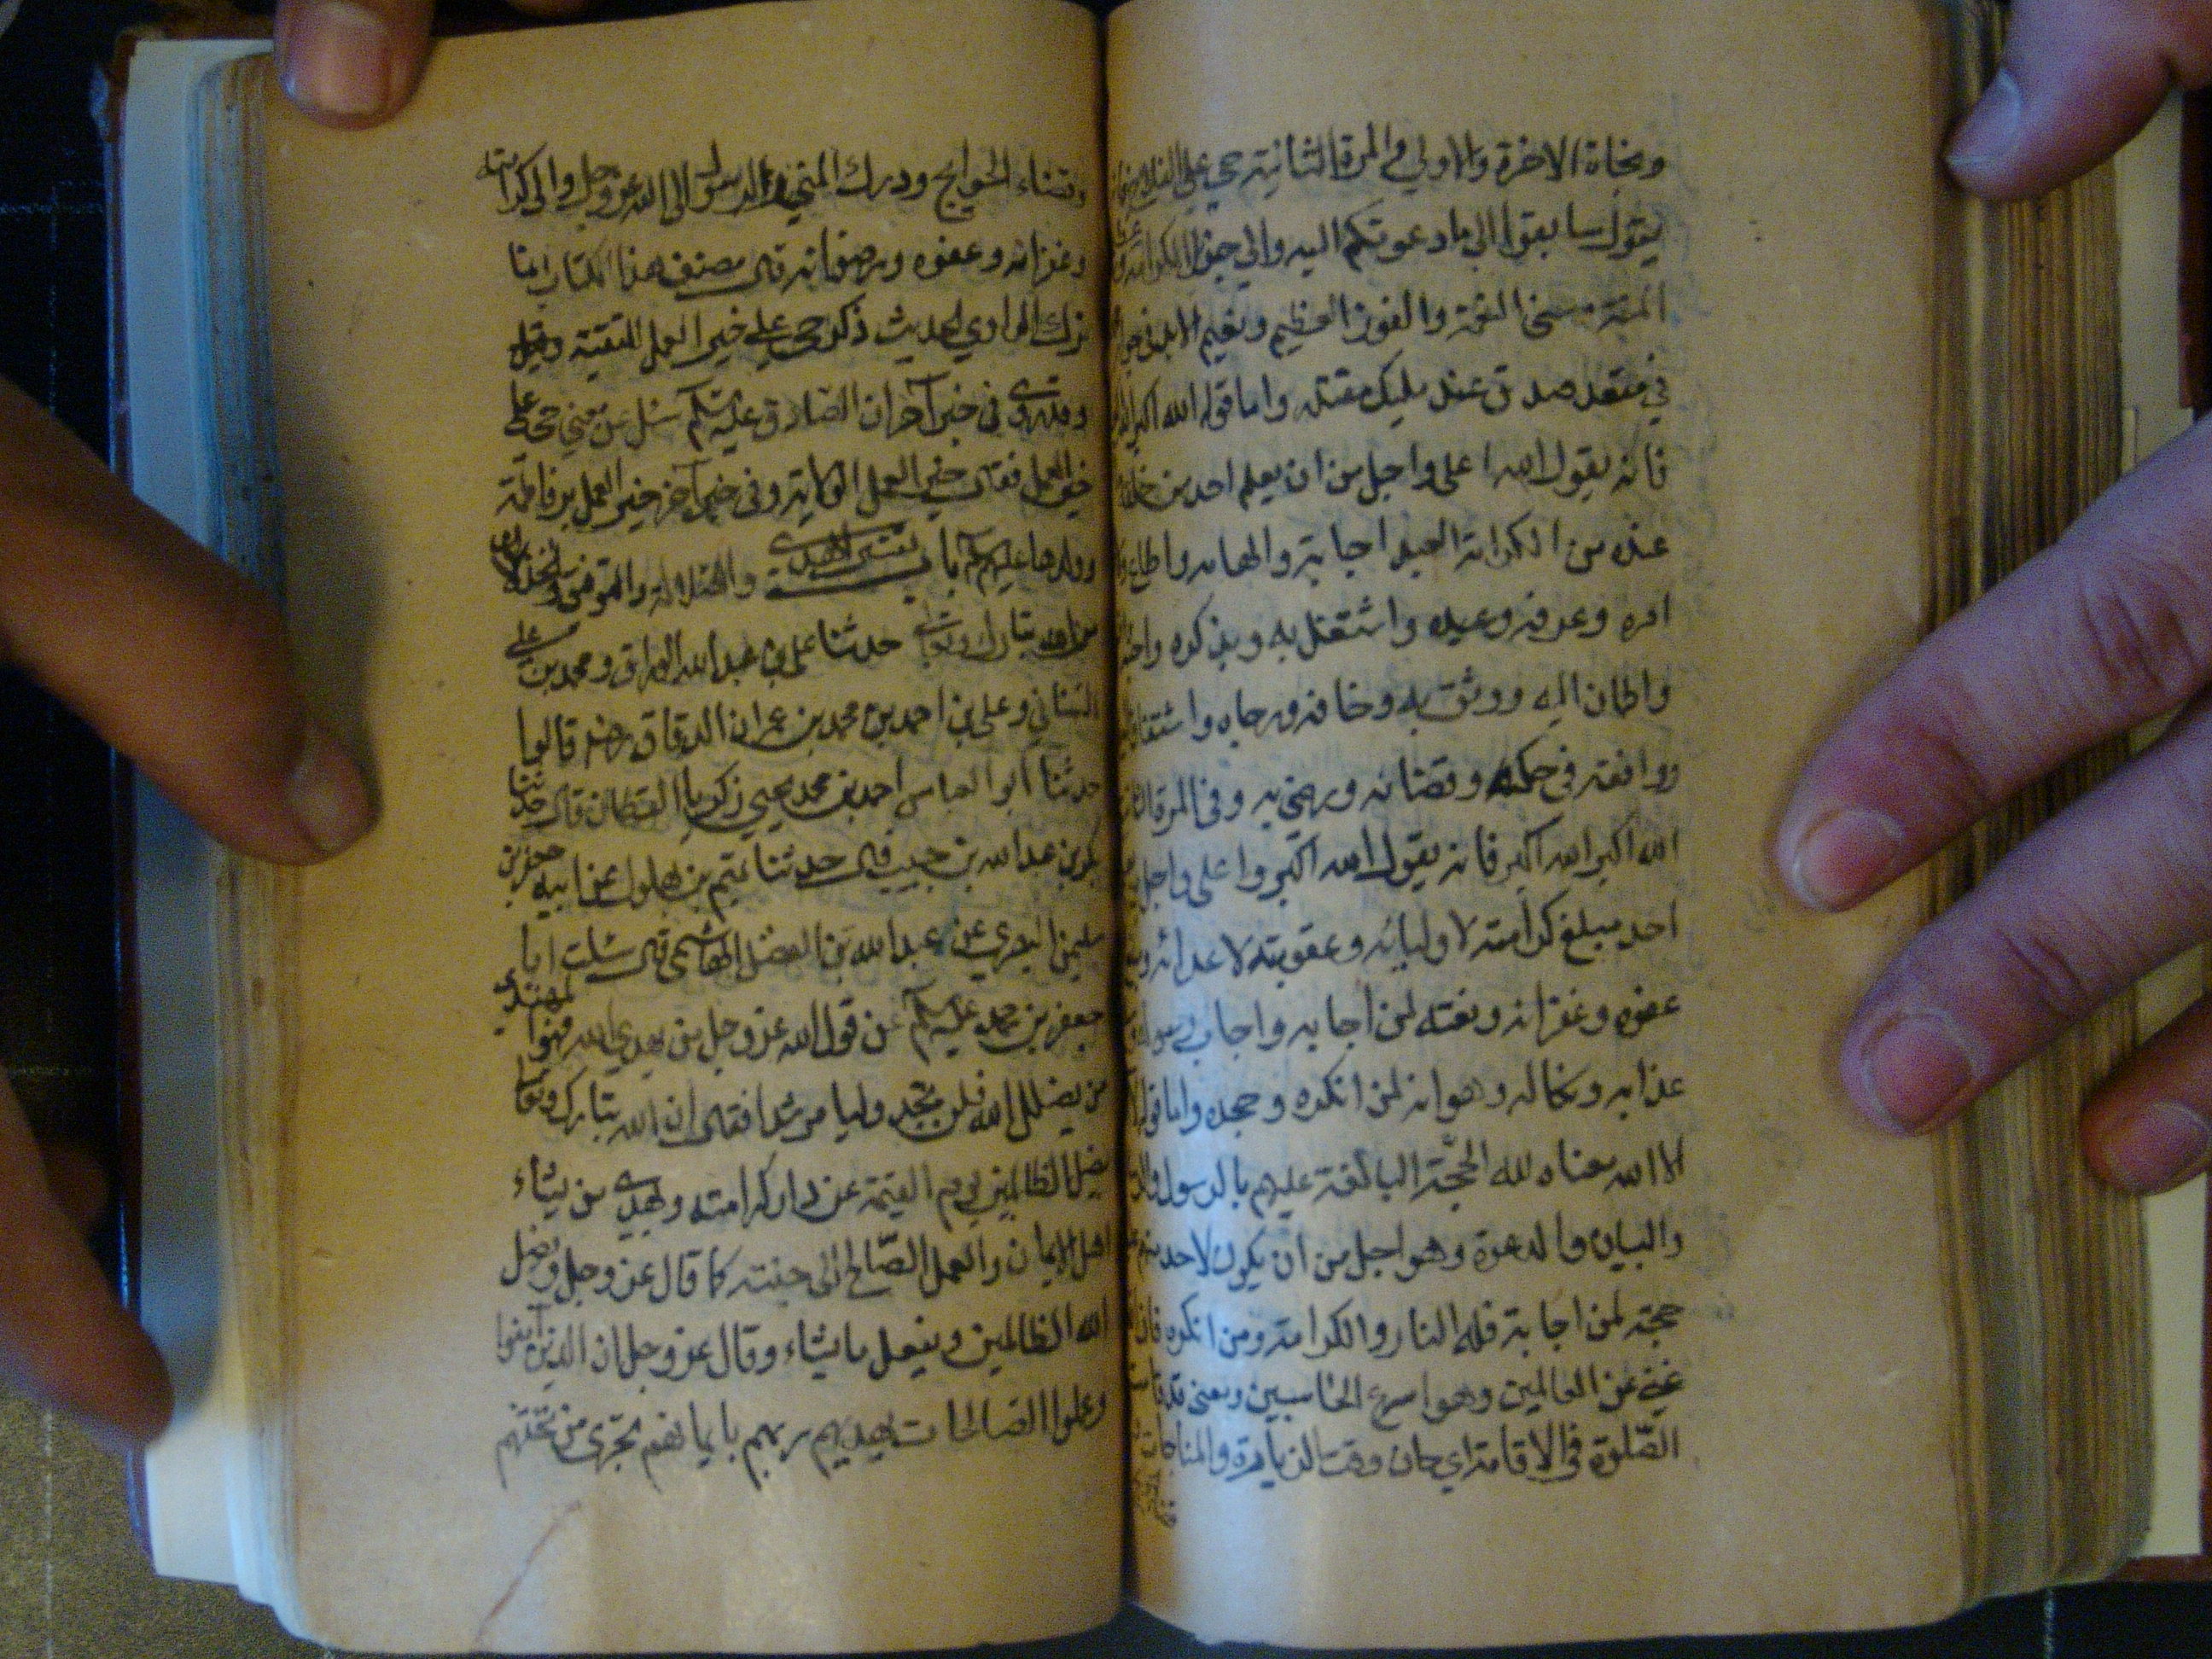 ونجاة الاخرة والاولى وفى المرة الثانية حى على الفلاح
يقول سابقوا الى ما دعوتكم اليه والى جزيل الكرامة و
المنة سنى النعمة والفوز العظيم ونعيم الابد فى جوار
في مقعد صدق عند مليك مقتدر واما قوله الله اكبر
فانه يقول الله اعلى واجل من ان يعلم احد من خلقه
عنده من الكرامة العبد اجابته والهامه واطاع
امره وعرفه وعيده واشتغل به وبذكره
واطمان اليه ووثق به وخافه ورجاه واشتاق
ووافقه فى حكمه وقضائه ورضى به وفى المرة الثانية
الله اكبر الله اكبر فانه يقول الله اكبر واعلى واجل
احد مبلغ كرامته لاوليائه وعقوبته لاعدائه
عفوه وغفرانه ونعمته لمن اجابه واجاب رسوله
عذابه ونكاله وهوانه لمن انكره وجحده واما قوله
لا الله معناه لله الحجة البالغة عليهم بالرسول
والبيان والدعوة وهو اجل من ان يكون لاحد منهم
حجة لمن اجابه فله النار والكرامة ومن انكره فان
غنى عن العالمين وهو اسرع الحاسبين ومعنى قد قامت
الصلوة فى الاقامة اي حان وقت الزيارة والمناجات
وقضاء الحوائج ودرك المنى والى الله عز وجل والى كرامته
وغفرانه وعفوه ورضوانه قال مصنف هذا الكتاب انما
ترك الراوي لحديث ذكر حى على خير العمل للتقية
وقد روى في خبر آخر ان الصادق عليه السلم سئل عن معنى حى على
خير العمل فقال خير العمل الولاية وفى خبر آخر خير العمل بر فاطمة
وولدها عليهم السلم باب تفسير الهدى والضلالة والتوفيق والخذلان
من الله تبارك وتعالى حدثنا على بن عبدالله الوراق ومحمد بن على
السناني وعلى بن احمد بن محمد بن عمران الدقاق رضه قالوا
حدثنا ابو العباس احمد بن محمد يحيى زكريا القطان قال حدثنا
بكر بن عبدالله بن حبيب قال حدثنا تميم بن بهلول عن ابيه جعفر بن
سليمن البصري عن عبدالله بن الفضل الهاشمى قال سئلت ابا
جعفر بن محمد عليه السلم عن قول الله عز وجل من يهدي الله فهو المهتدي
من يضلل الله فلن تجد وليا مرشدا فقال ان الله تبارك وتعالى
يضل الظالمين يوم القيمة عن دار كرامته ويهدى من يشاء
اهل الايمان والعمل الصالح الى جنته كما قال عز وجل ويضل
الله الظالمين ويفعل ما يشاء وقال عز وجل ان الذين آمنوا
وعملوا الصالحات يهديهم ربهم بايمانهم تجرى من تحتهم